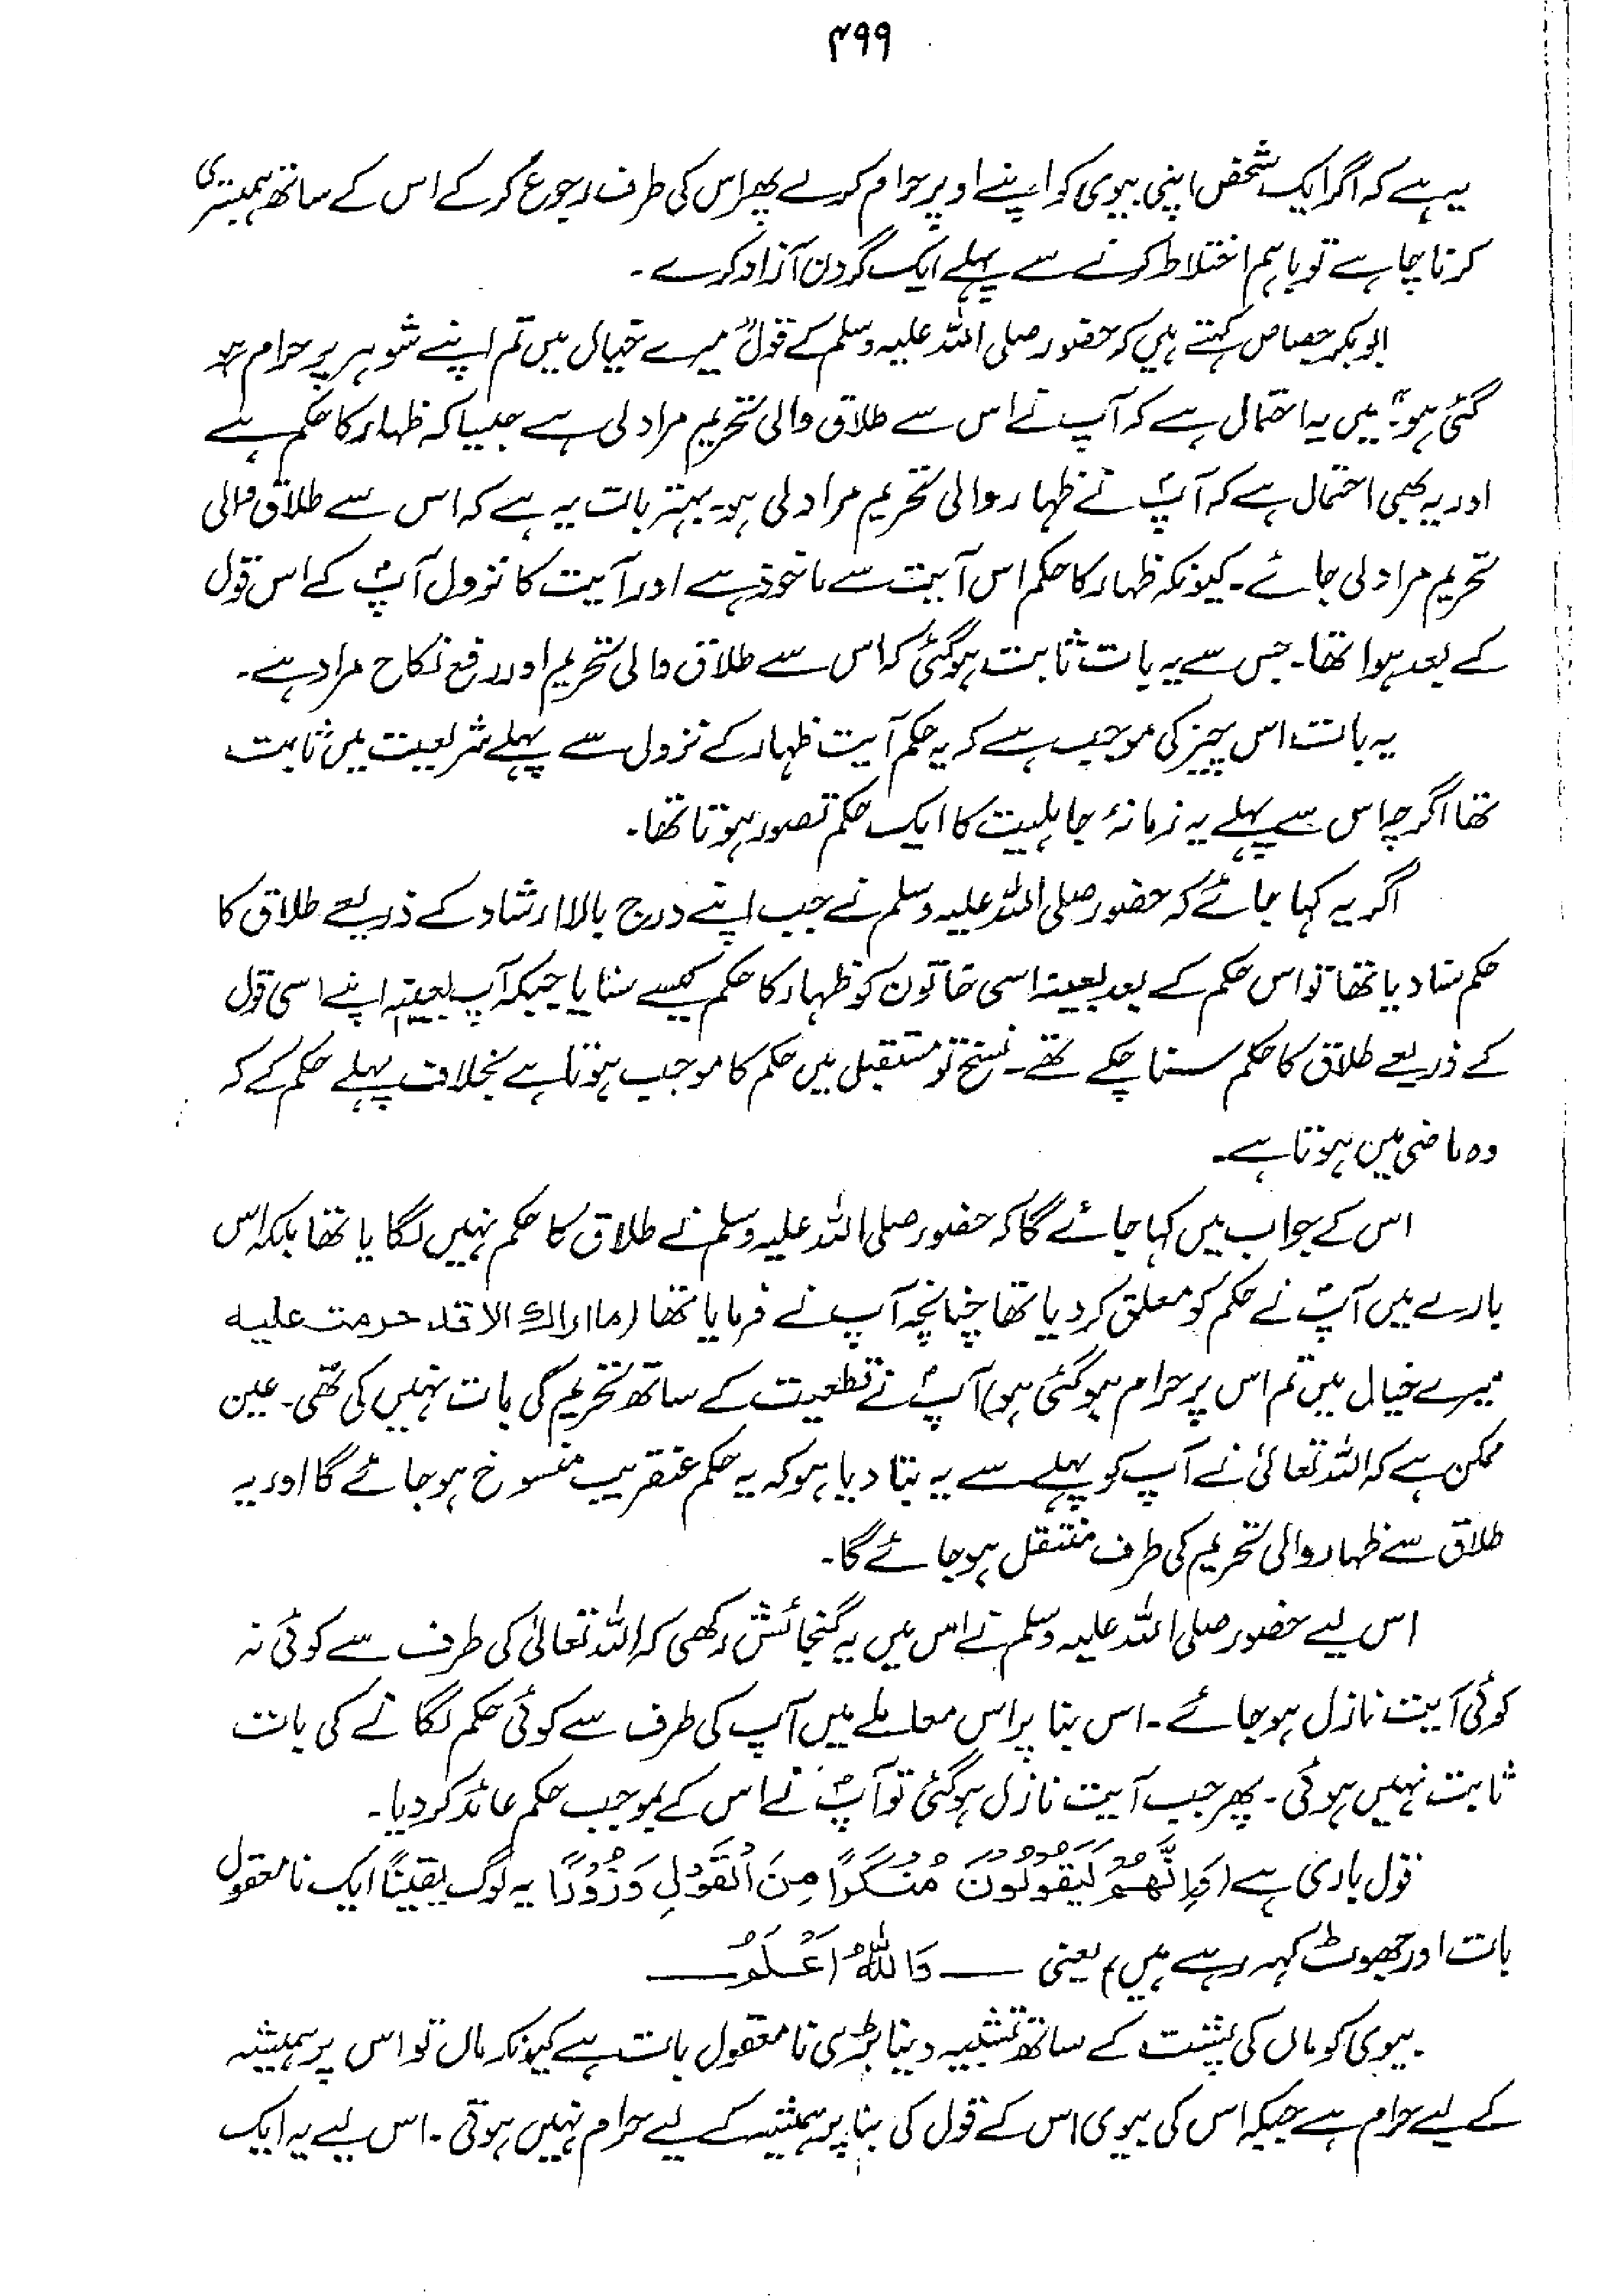 ۴۹۹
یہ ہے کہ اگر ایک شخص اپنی بیوی کو اپنے اوپر حرام کرلے پھر اس کی طرف رجوع کر کے اس کے ساتھ ہمبستری
کرنا چاہے تو باہم اختلاط کرنے سے پہلے ایک گردن آزاد کرے۔
ابوبکر جصاص کہتے ہیں کہ حضور صلی اللہ علیہ وسلم کے قول "میرے خیال میں تم اپنے شوہر پر حرام ہو
گئی ہو" میں یہ احتمال ہے کہ آپ نے اس سے طلاق والی تحریم مراد لی ہے جیسا کہ ظہار کا حکم ہے
اور یہ بھی احتمال ہے کہ آپؐ نے ظہار والی تحریم مراد لی ہو۔ بہتر بات یہ ہے کہ اس سے طلاق والی
تحریم مراد لی جائے۔ کیونکہ ظہار کا حکم اس آیت سے ماخوذ ہے اور آیت کا نزول آپؐ کے اس قول
کے بعد ہوا تھا۔ جس سے یہ بات ثابت ہوگئی کہ اس سے طلاق والی تحریم اور رفع نکاح مراد ہے۔
یہ بات اس چیز کی موجب ہے کہ یہ حکم آیت ظہار کے نزول سے پہلے شریعت میں ثابت
تھا اگرچہ اس سے پہلے یہ زمانۂ جاہلیت کا ایک حکم تصور ہوتا تھا۔
اگر یہ کہا جائے کہ حضور صلی اللہ علیہ وسلم نے جب اپنے درج بالا ارشاد کے ذریعے طلاق کا
حکم سنا دیا تھا تو اس حکم کے بعد بعینہٖ اسی خاتون کو ظہار کا حکم کیسے سنایا جبکہ آپ بعینہٖ اپنے اسی قول
کے ذریعے طلاق کا حکم سنا چکے تھے۔ نسخ تو مستقبل میں حکم کا موجب ہوتا ہے بخلاف پہلے حکم کے کہ
وہ ماضی میں ہوتا ہے۔
اس کے جواب میں کہا جائے گا کہ حضور صلی اللہ علیہ وسلم نے طلاق کا حکم نہیں لگایا تھا بلکہ اس
بارے میں آپؐ نے حکم کو معلق کر دیا تھا چنانچہ آپ نے فرمایا تھا (ما اراك الا قد حرمت علیہ
میرے خیال میں تم اس پر حرام ہو گئی ہو) آپؐ نے قطعیت کے ساتھ تحریم کی بات نہیں کی تھی۔ عین
ممکن ہے کہ اللہ تعالیٰ نے آپ کو پہلے سے یہ بتا دیا ہو کہ یہ حکم عنقریب منسوخ ہو جائے گا اور یہ
طلاق سے ظہار والی تحریم کی طرف منتقل ہو جائے گا۔
اس لیے حضور صلی اللہ علیہ وسلم نے اس میں یہ گنجائش رکھی کہ اللہ تعالیٰ کی طرف سے کوئی نہ
کوئی آیت نازل ہو جائے۔ اس بنا پر اس معاملے میں آپ کی طرف سے کوئی حکم لگانے کی بات
ثابت نہیں ہوئی۔ پھر جب آیت نازل ہوگئی تو آپؐ نے اس کے بموجب حکم عائد کر دیا۔
قول باری ہے (وَاِنَّهُمْ لَيَقُوْلُوْنَ مُنْكَرًا مِنَ الْقَوْلِ وَزُوْرًا یہ لوگ یقیناً ایک نامعقول
بات اور جھوٹ کہہ رہے ہیں) یعنی ــــ وَاللّٰهُ اَعْلَمُ ــــ
بیوی کو ماں کی پشت کے ساتھ تشبیہ دینا بڑی نامعقول بات ہے کیونکہ ماں تو اس پر ہمیشہ
کے لیے حرام ہے جبکہ اس کی بیوی اس کے قول کی بنا پر ہمیشہ کے لیے حرام نہیں ہوتی۔ اس لیے یہ ایک